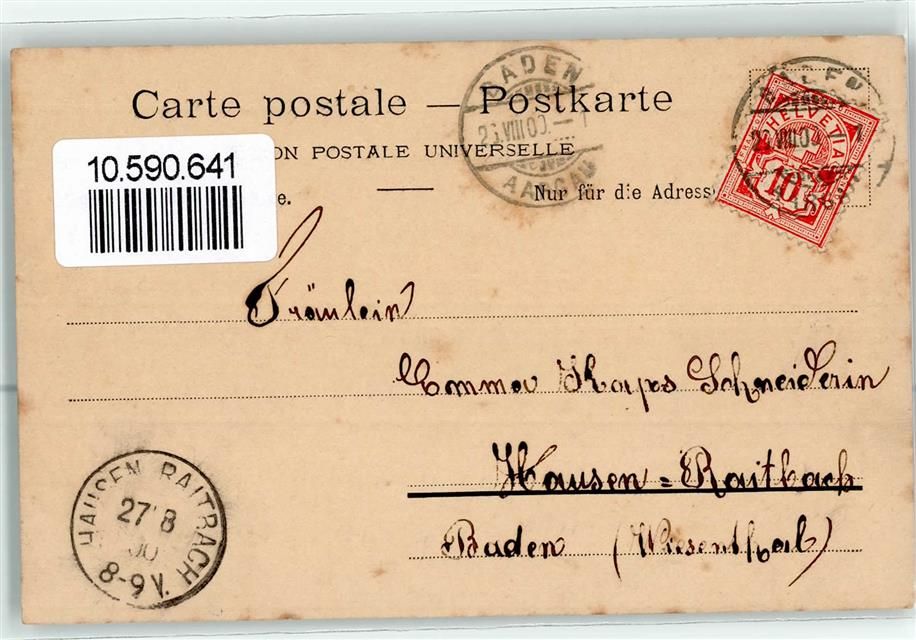 Carte postale — Postkarte
10.590.641
ON POSTALE UNIVERSELLE
e.
Nur für die Adress
BADEN
VIII.00.—
AARGAU
HELVETIA
10
Fräulein
Emma Kaps Schneiderin
Hausen=Raitbach
Baden (Wiesenthal)
HAUSEN RAITBACH
27 8
00
8-9V.